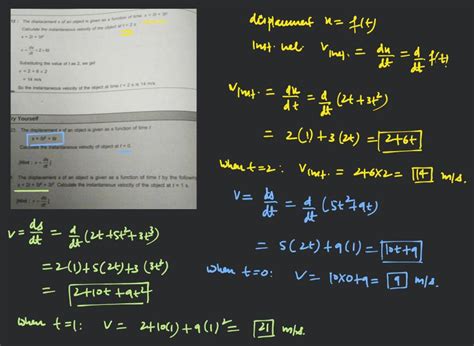 The displacement x of an object is given as a function of time, x = 2t + 3t²
Calculate the instantaneous velocity of the object at t = 2 s.
v = dx/dt = 2 + 6t
Substituting the value of t as 2, we get
v = 2 + 6 × 2
= 14 m/s
So the instantaneous velocity of the object at time t = 2 s is 14 m/s.
ry Yourself
The displacement x of an object is given as a function of time t
Calculate the instantaneous velocity of the object at t = 0.
The displacement of an object is given as a function of time t by the following
x = 2t + 5t² + 3t³ Calculate the instantaneous velocity of the object at t = 1 s.
displacement x = f(t)
inst. vel. v inst. = dx/dt = d/dt f(t)
v inst. = dx/dt = d/dt (2t + 3t²)
= 2(1) + 3(2t) = 2+6t
when t=2: v inst. = 2+6×2 = 14 m/s.
v = ds/dt = d/dt (5t² + 9t)
= 5(2t) + 9(1) = 10t+9
when t=0: v = 10×0+9 = 9 m/s.
v = ds/dt = d/dt (2t + 5t² + 3t³)
= 2(1) + 5(2t) + 3(3t²)
= 2+10t+9t²
when t=1: v = 2+10(1)+9(1)² = 21 m/s.